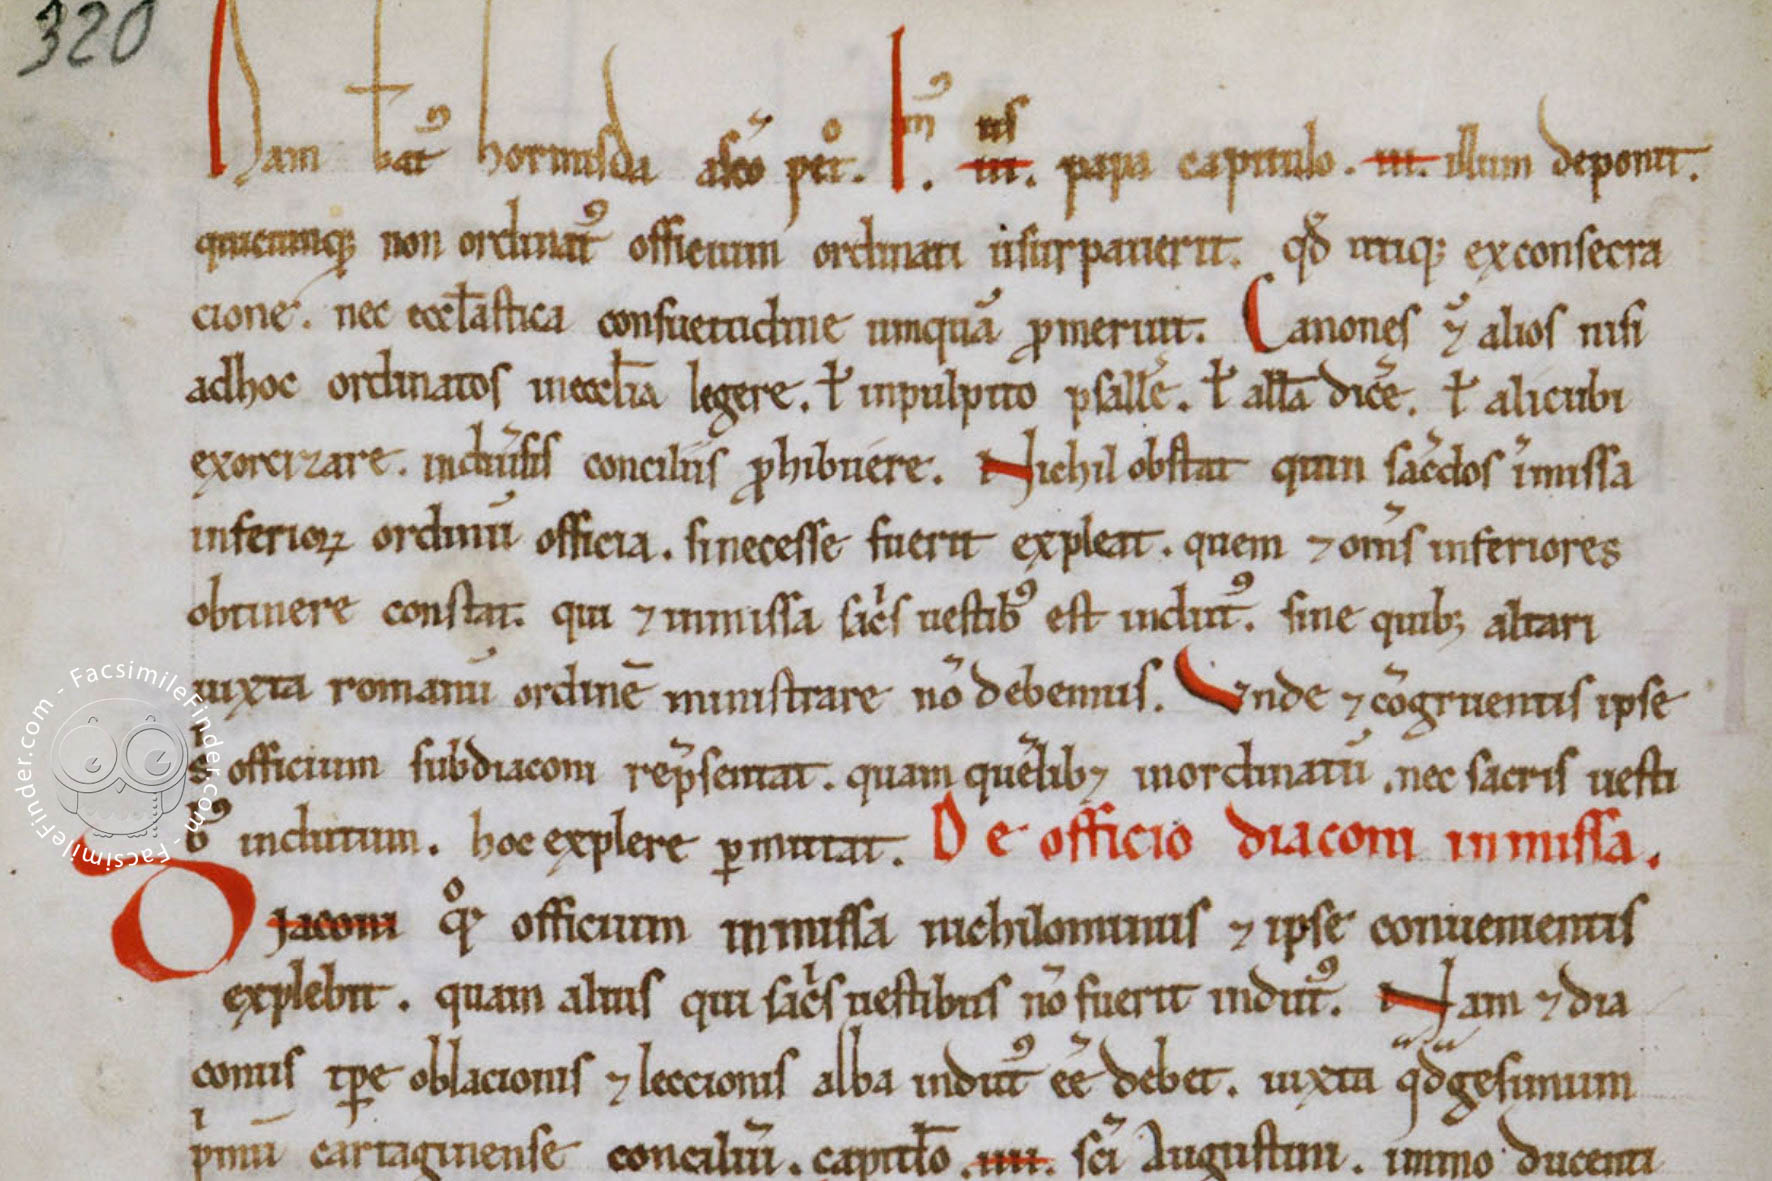 320
Nam bat᷒ hormisda a sc̄o pet̊. l᷒m. iii. papa capitulo. iii. illum deponit.
quicunq; non ordinat᷒ officium ordinati usurpauerit. qd̄ utiq; ex consecra
cione. nec eccl̄astica consuetudine umquā p̄meruit. Canones ⁊ alios nisi
adhoc ordinatos ineccl̄ia legere. ł inpulpito psallē. ł all̄a dicē. ł alicubi
exorcizare. indiūsis conciliis p̄hibuere. Nichil obstat quin sac̄dos īmissa
inferioꝝ ordinū officia. sinecesse fuerit expleat. quem ⁊ om̄s inferiores
obtinere constat. qui ⁊ inmissa sac̄s uestib᷒ est indut᷒. sine quib; altari
iuxta romanū ordinē ministrare nō debemus. Vnde ⁊ cōgruentis ipse
officium subdiaconi rep̄sentat. quam quēlib; inordinatū. nec sacris uesti
b᷒ indutum. hoc explere p̱mittat. De officio diaconi inmissa.
Diaconi qͦꝙ officium inmissa nichilominus ⁊ ipse conuenientis
explebit. quam alius qui sac̄s uestibus nō fuerit indut᷒. Nam ⁊ dia
conus tp̄re oblacionis ⁊ leccionis alba indut᷒ eē debet. iuxta qᵃdᵃgesimum
p̄mū cartaginense conciliū. capitul̄o. iiii. sc̄i Augustini. immo ducenti
FacsimileFinder.com - FacsimileFinder.com -